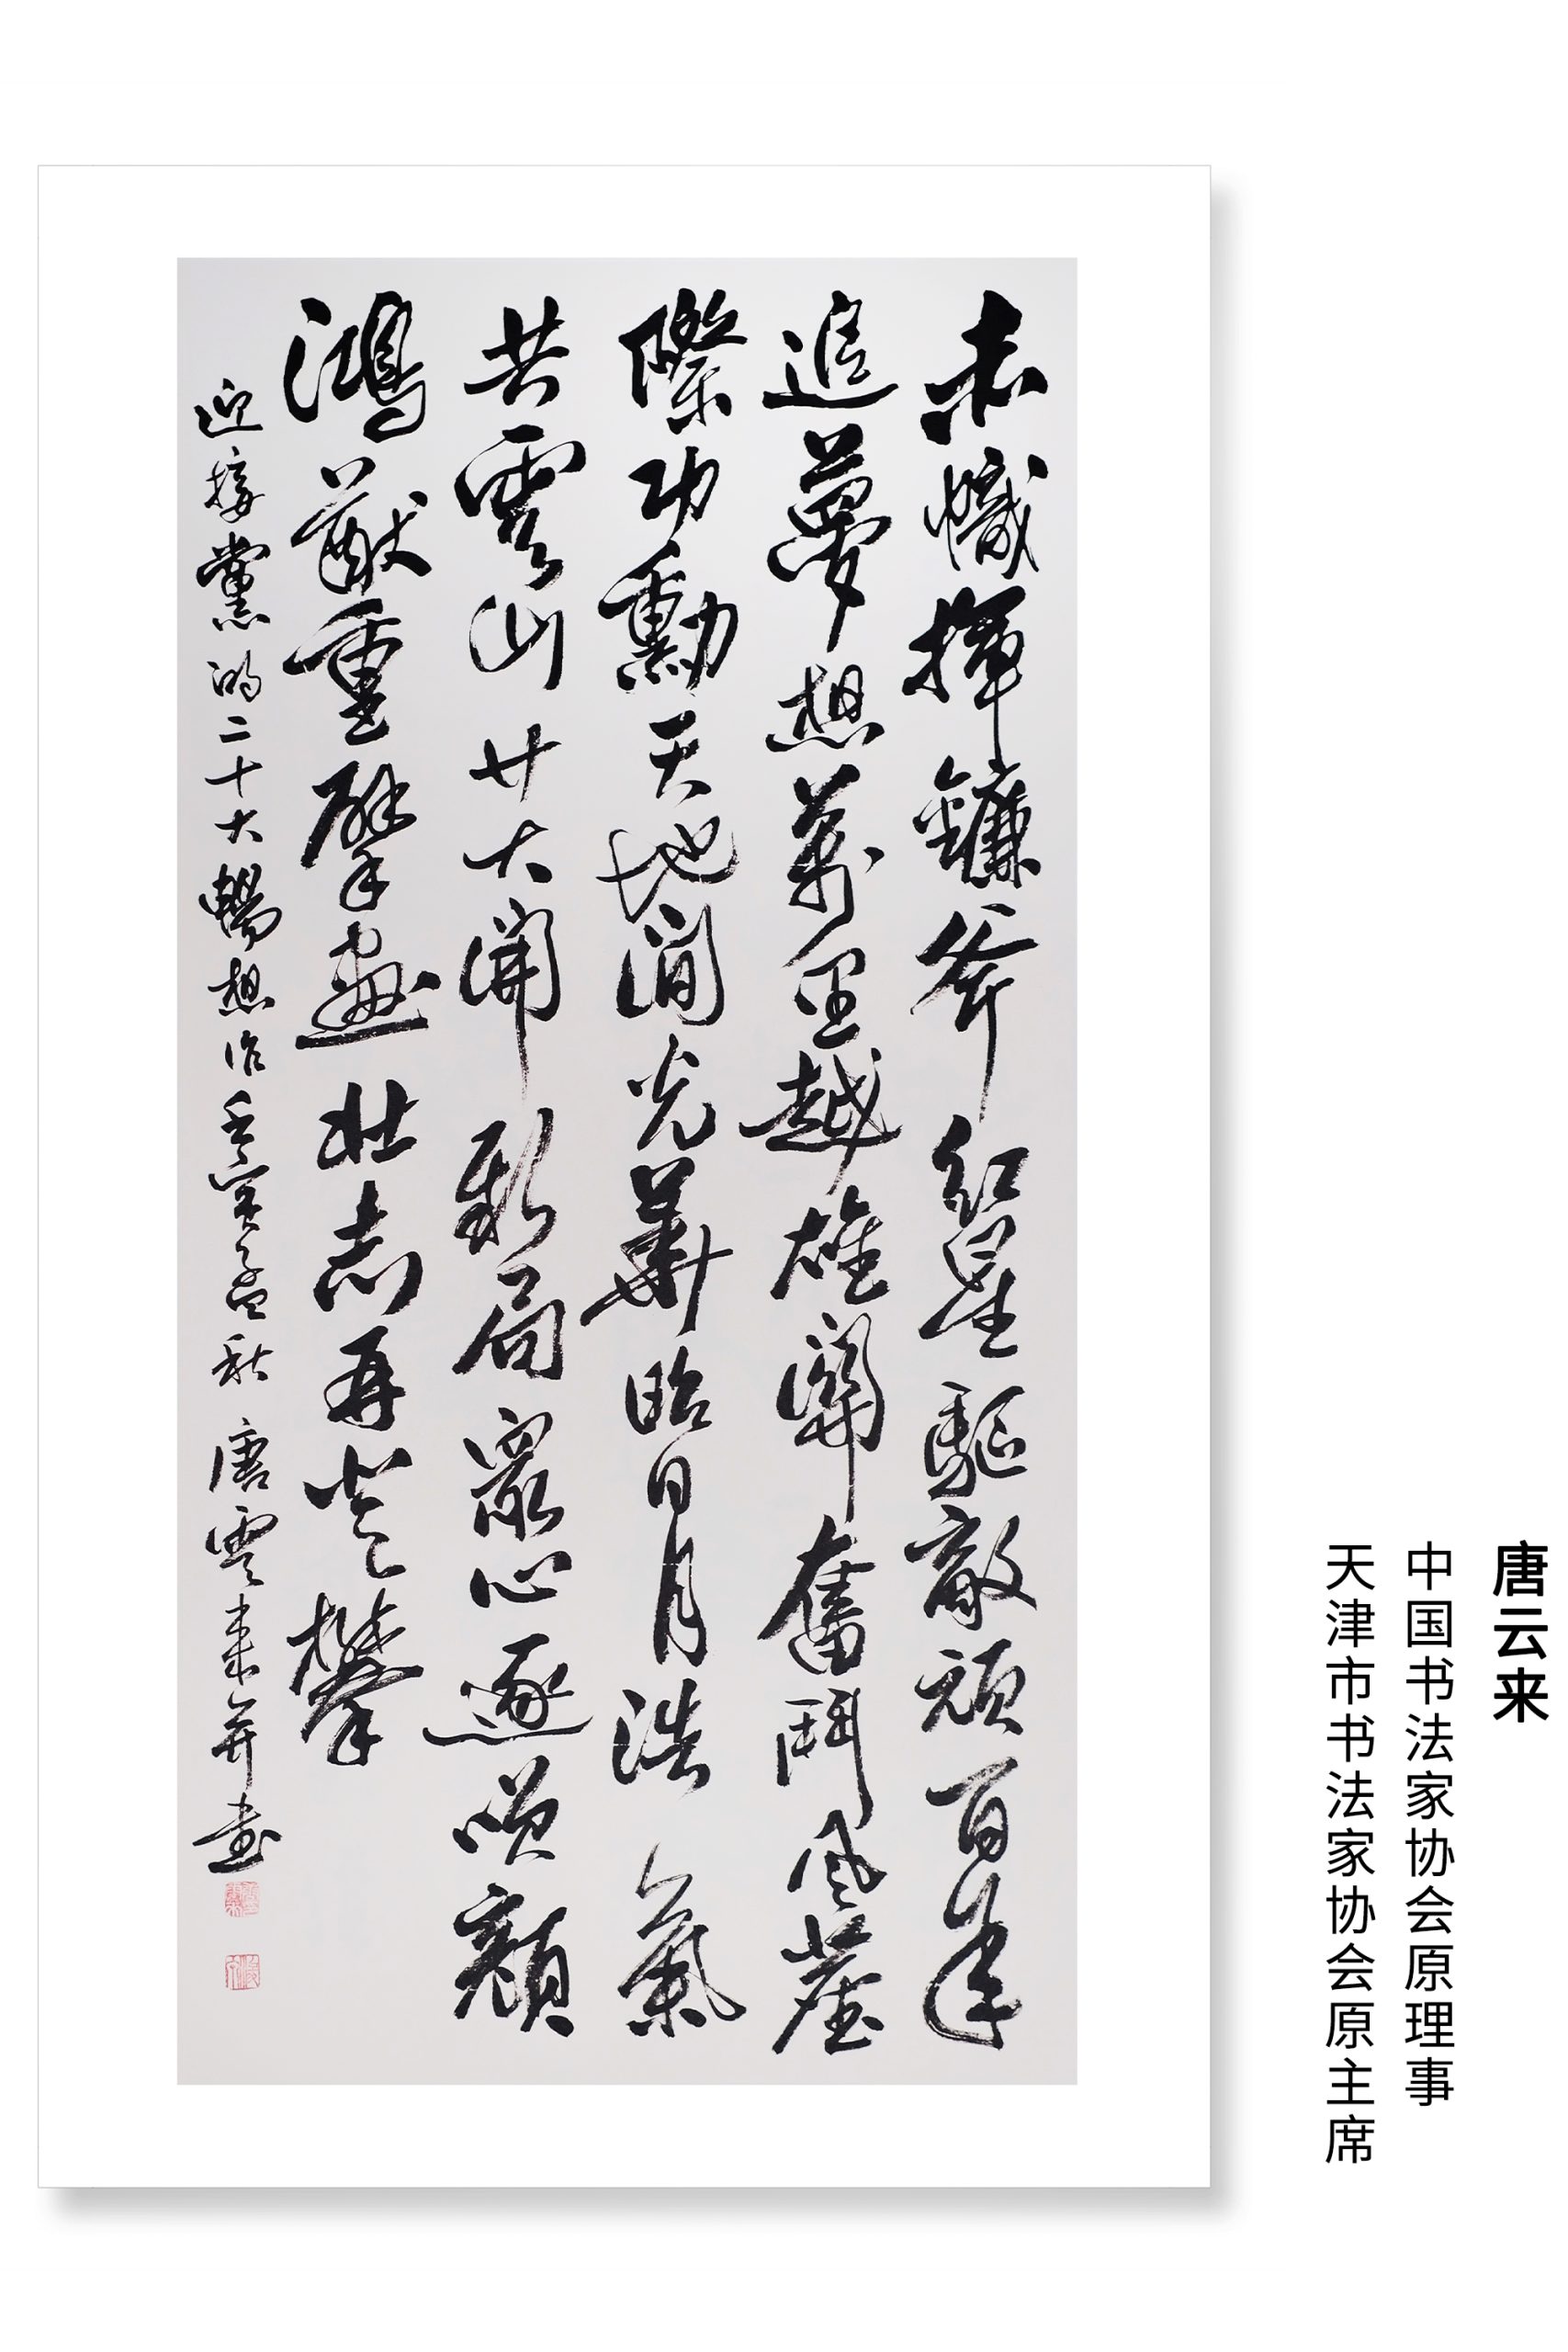 唐云来
中国书法家协会原理事
天津市书法家协会原主席
赤幟揮鐮斧紅星驅敵頑百年
追夢想萬里越雄關奮鬥風塵
際功勳天地間光華昭日月浩氣
共雲山廿大開新局眾心逐顏
鴻猷重擘畫壯志再登攀
迎接黨的二十大暢想作壬寅孟秋 唐雲來并書